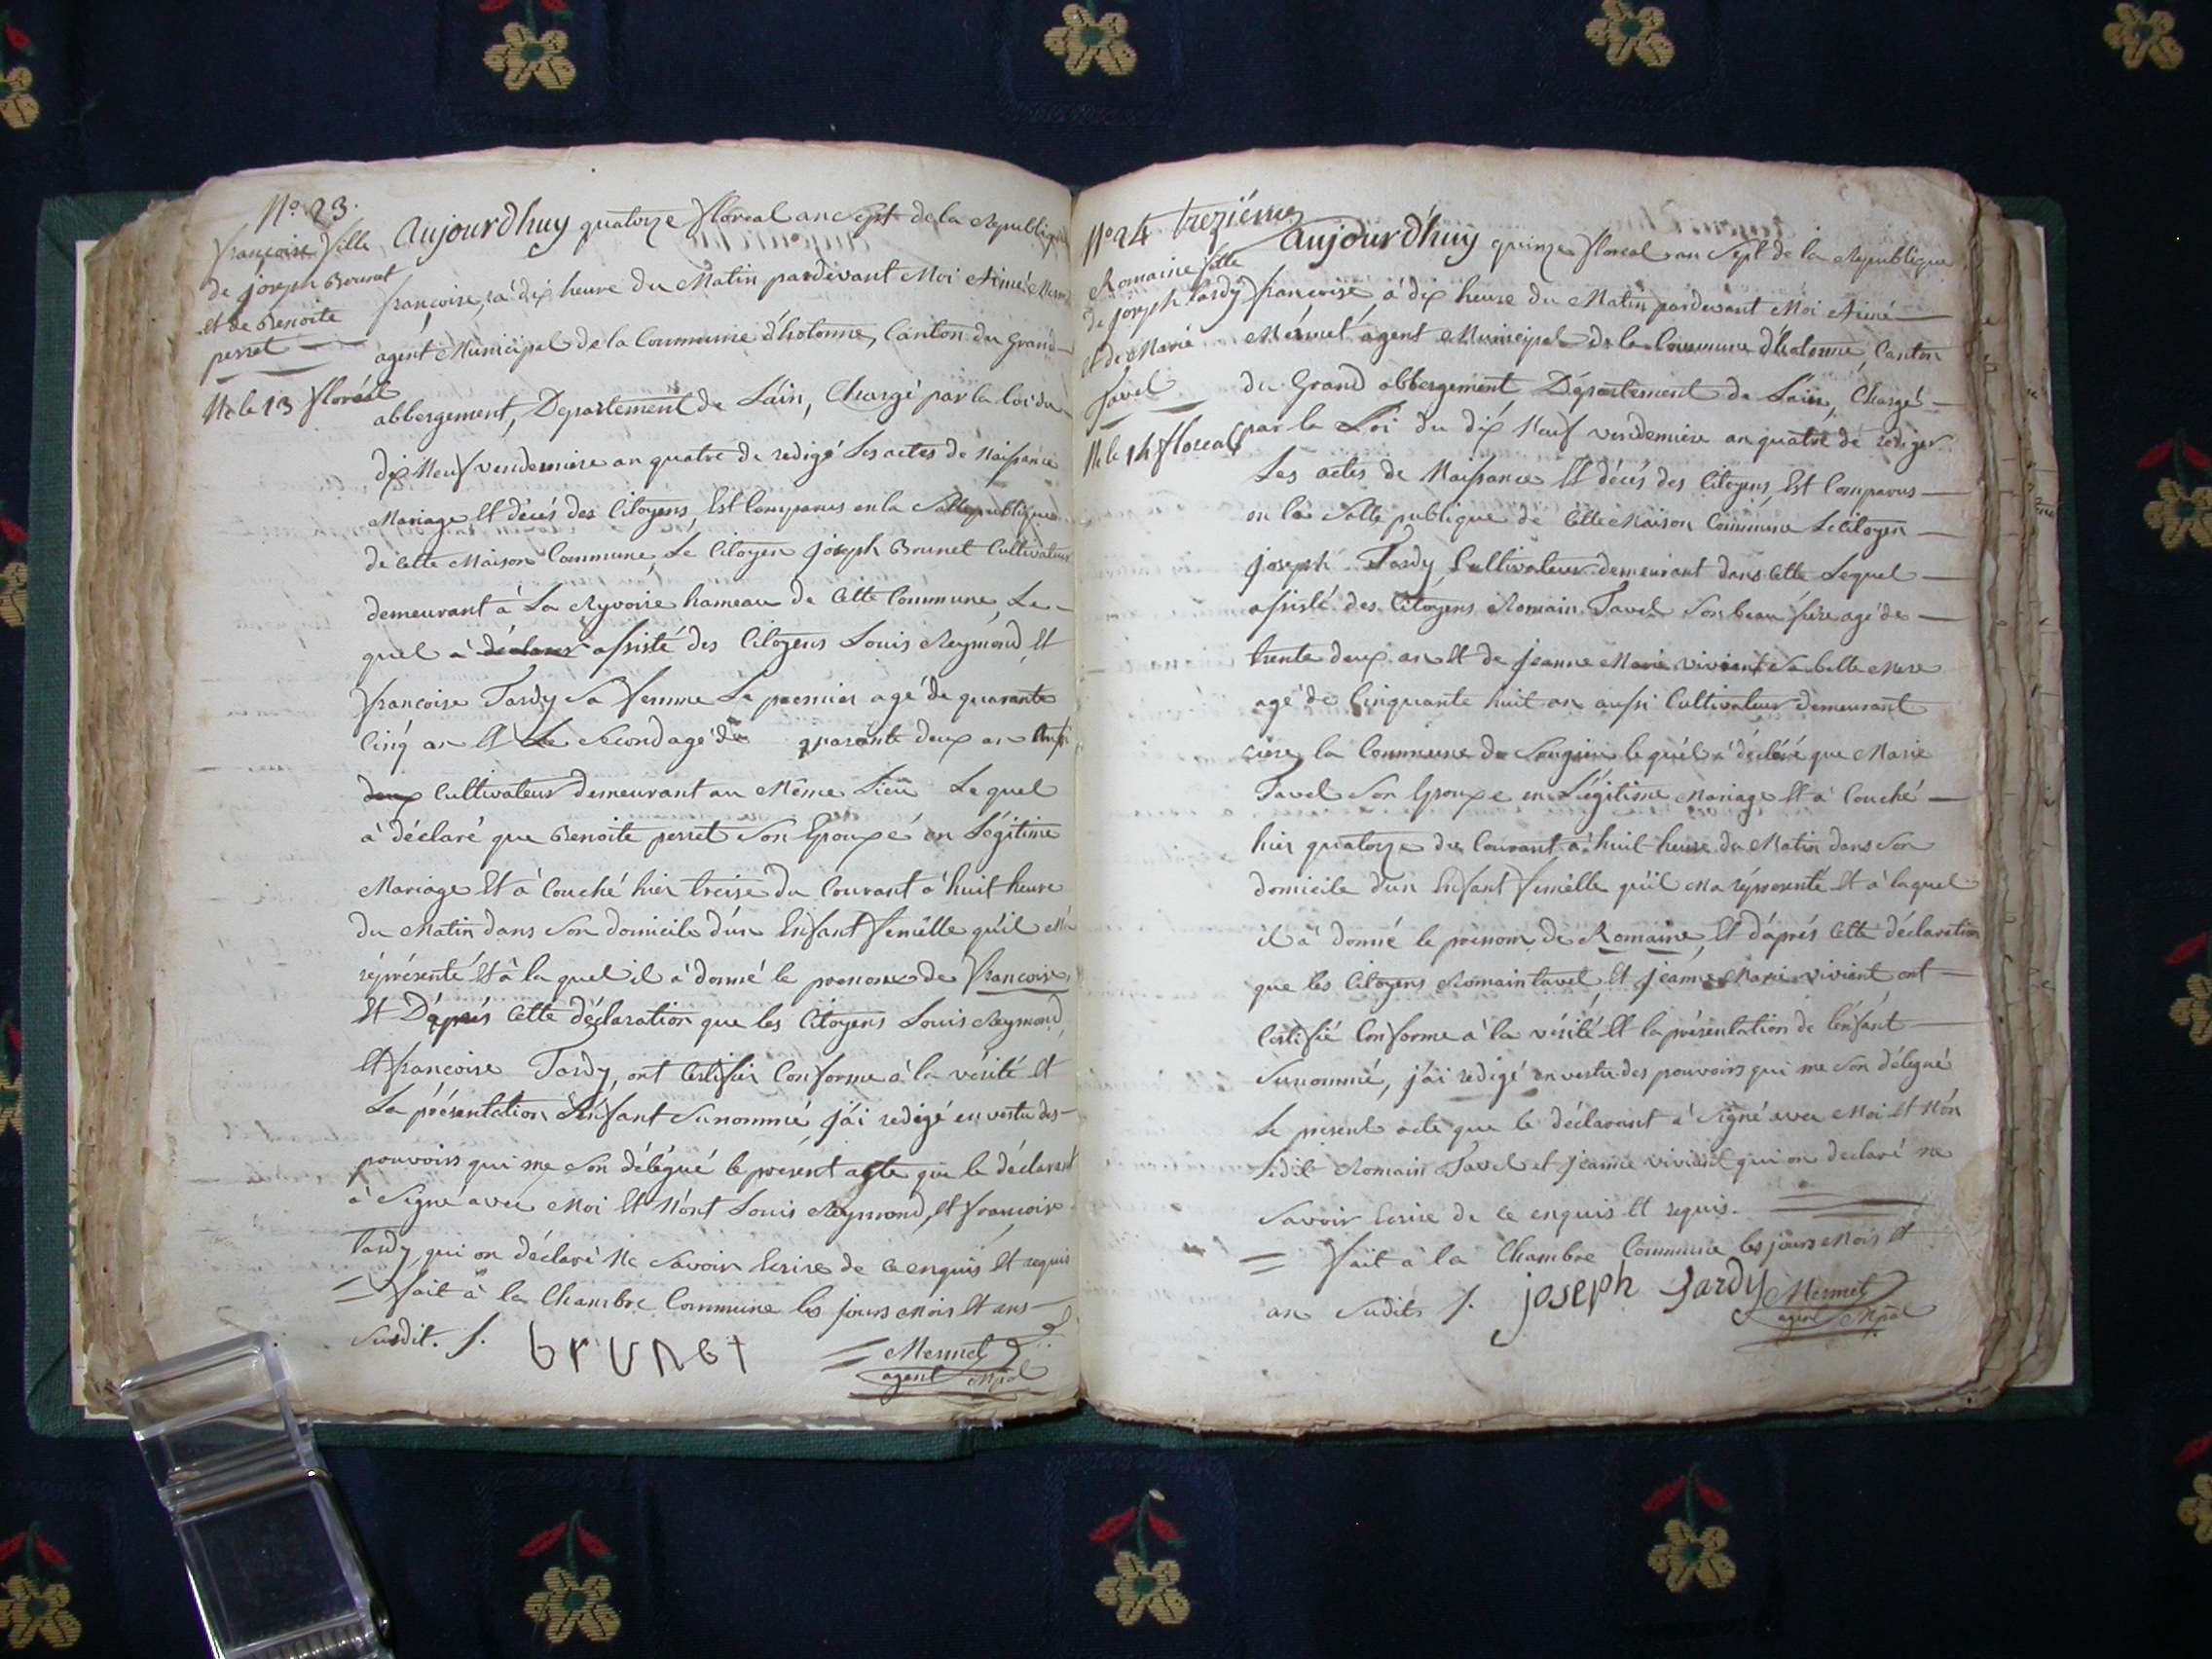 N.° 23.
françoise fille
de joseph Brunet
et de Benoite
perret
Né le 13 floréal
Aujourdhuy quatorze floreal an Sept de la Republique
françoise, à dix heure du Matin pardevant Moi Aimé Merm
agent Municipal de la Commune d'hotonne, Canton du Grand
abbergement, Departement de L'ain, Chargé par la loi du
dix Neuf vendemiere an quatre de redigé Les actes de Naissance
Mariage Et décés des Citoyens, Est Comparus en la Salle publique
de Cette Maison Commune, Le Citoyen joseph Brunet Cultivateur
demeurant à La Ryvoire hameau de Cette Commune, Le
quel à déclarer assisté des Citoyens Louis Reymond, Et
françoise Tardy Sa femme Le premier agé de quarante
Cinq an Et Le Second agé de quarante deux an Aussi
deux Cultivateur demeurant au Même Lieu Le quel
à déclaré que Benoite perret Son Epouxe en Légitime
Mariage Et à Couché hier treise du Courant à huit heure
du Matin dans Son domicile d'un Enfant femélle qu'il Ma
répresenté Et à la quel il à donné le prenom de françoise,
Et D'aprés Cette déclaration que les Citoyens Louis Reymond,
Et françoise Tardy, ont Certifier Conforme à la vérité Et
La présentation L'enfant Sunommé j'ai redigé en vertu des
pouvoirs qui me Son délégué le present acte que le déclarant
à Signé avec Moi Et N'ont Louis Reymond, Et françoise
Tardy, qui on déclaré Ne Savoir Ecrire de ce enquis Et requis
= fait à la Chambre Commune les jours Mois Et ans
Susdit. /. brunet
Mermet
agent Mpal
N° 24 trezième
Romaine fille
de joseph Tardy
et de Marie
Tavel
Né le 14 floreal
Aujourdhuy quinze floreal an Sept de la Republique
françoise, à dix heure du Matin pardevant Moi Aimé
Mermet agent Municipal de la Commune d'hotonne, Canton
du Grand abbergement Département de L'ain, Chargé
par la Loi du dix Neuf vendemiere an quatre de rediger
Les actes de Naissance Et décés des Citoyens, Est Comparus
en la Salle publique de Cette Maison Commune Le Citoyen
joseph Tardy, Cultivateur demeurant dans Cette Lequel
assisté des Citoyens Romain Tavel Son beau frére agé de
trente deux an Et de jeanne Marie vivient Sa belle Mere
agé de Cinquante huit an aussi Cultivateur demeurant
la Commune de Songieu le quél à décléré que Marie
Tavel Son Epouxe en Légitime Mariage Et à Couché
hier quatorze du Courant à huit heure du Matin dans Son
domicile d'un Enfant femélle qu'il Ma répresenté Et à laquel
il à donné le prenom de Romaine, Et d'aprés Cette déclaration
que les Citoyens Romain tavel, Et jeanne Marie vivient ont
Certifié Conforme à la vérité, Et la présentation de l'enfant
Sunommé, j'ai redigé en vertu des pouvoirs qui me Son délégué
Le present acte que le déclarant à Signé avec Moi Et Non
Ledit Romain Tavel et jeanne vivient qui on declaré ne
Savoir Ecrire de ce enquis Et requis.
= fait à la Chambre Commune les jours Mois Et
an Sudits /. joseph Tardy
Mermet
agent Mpal